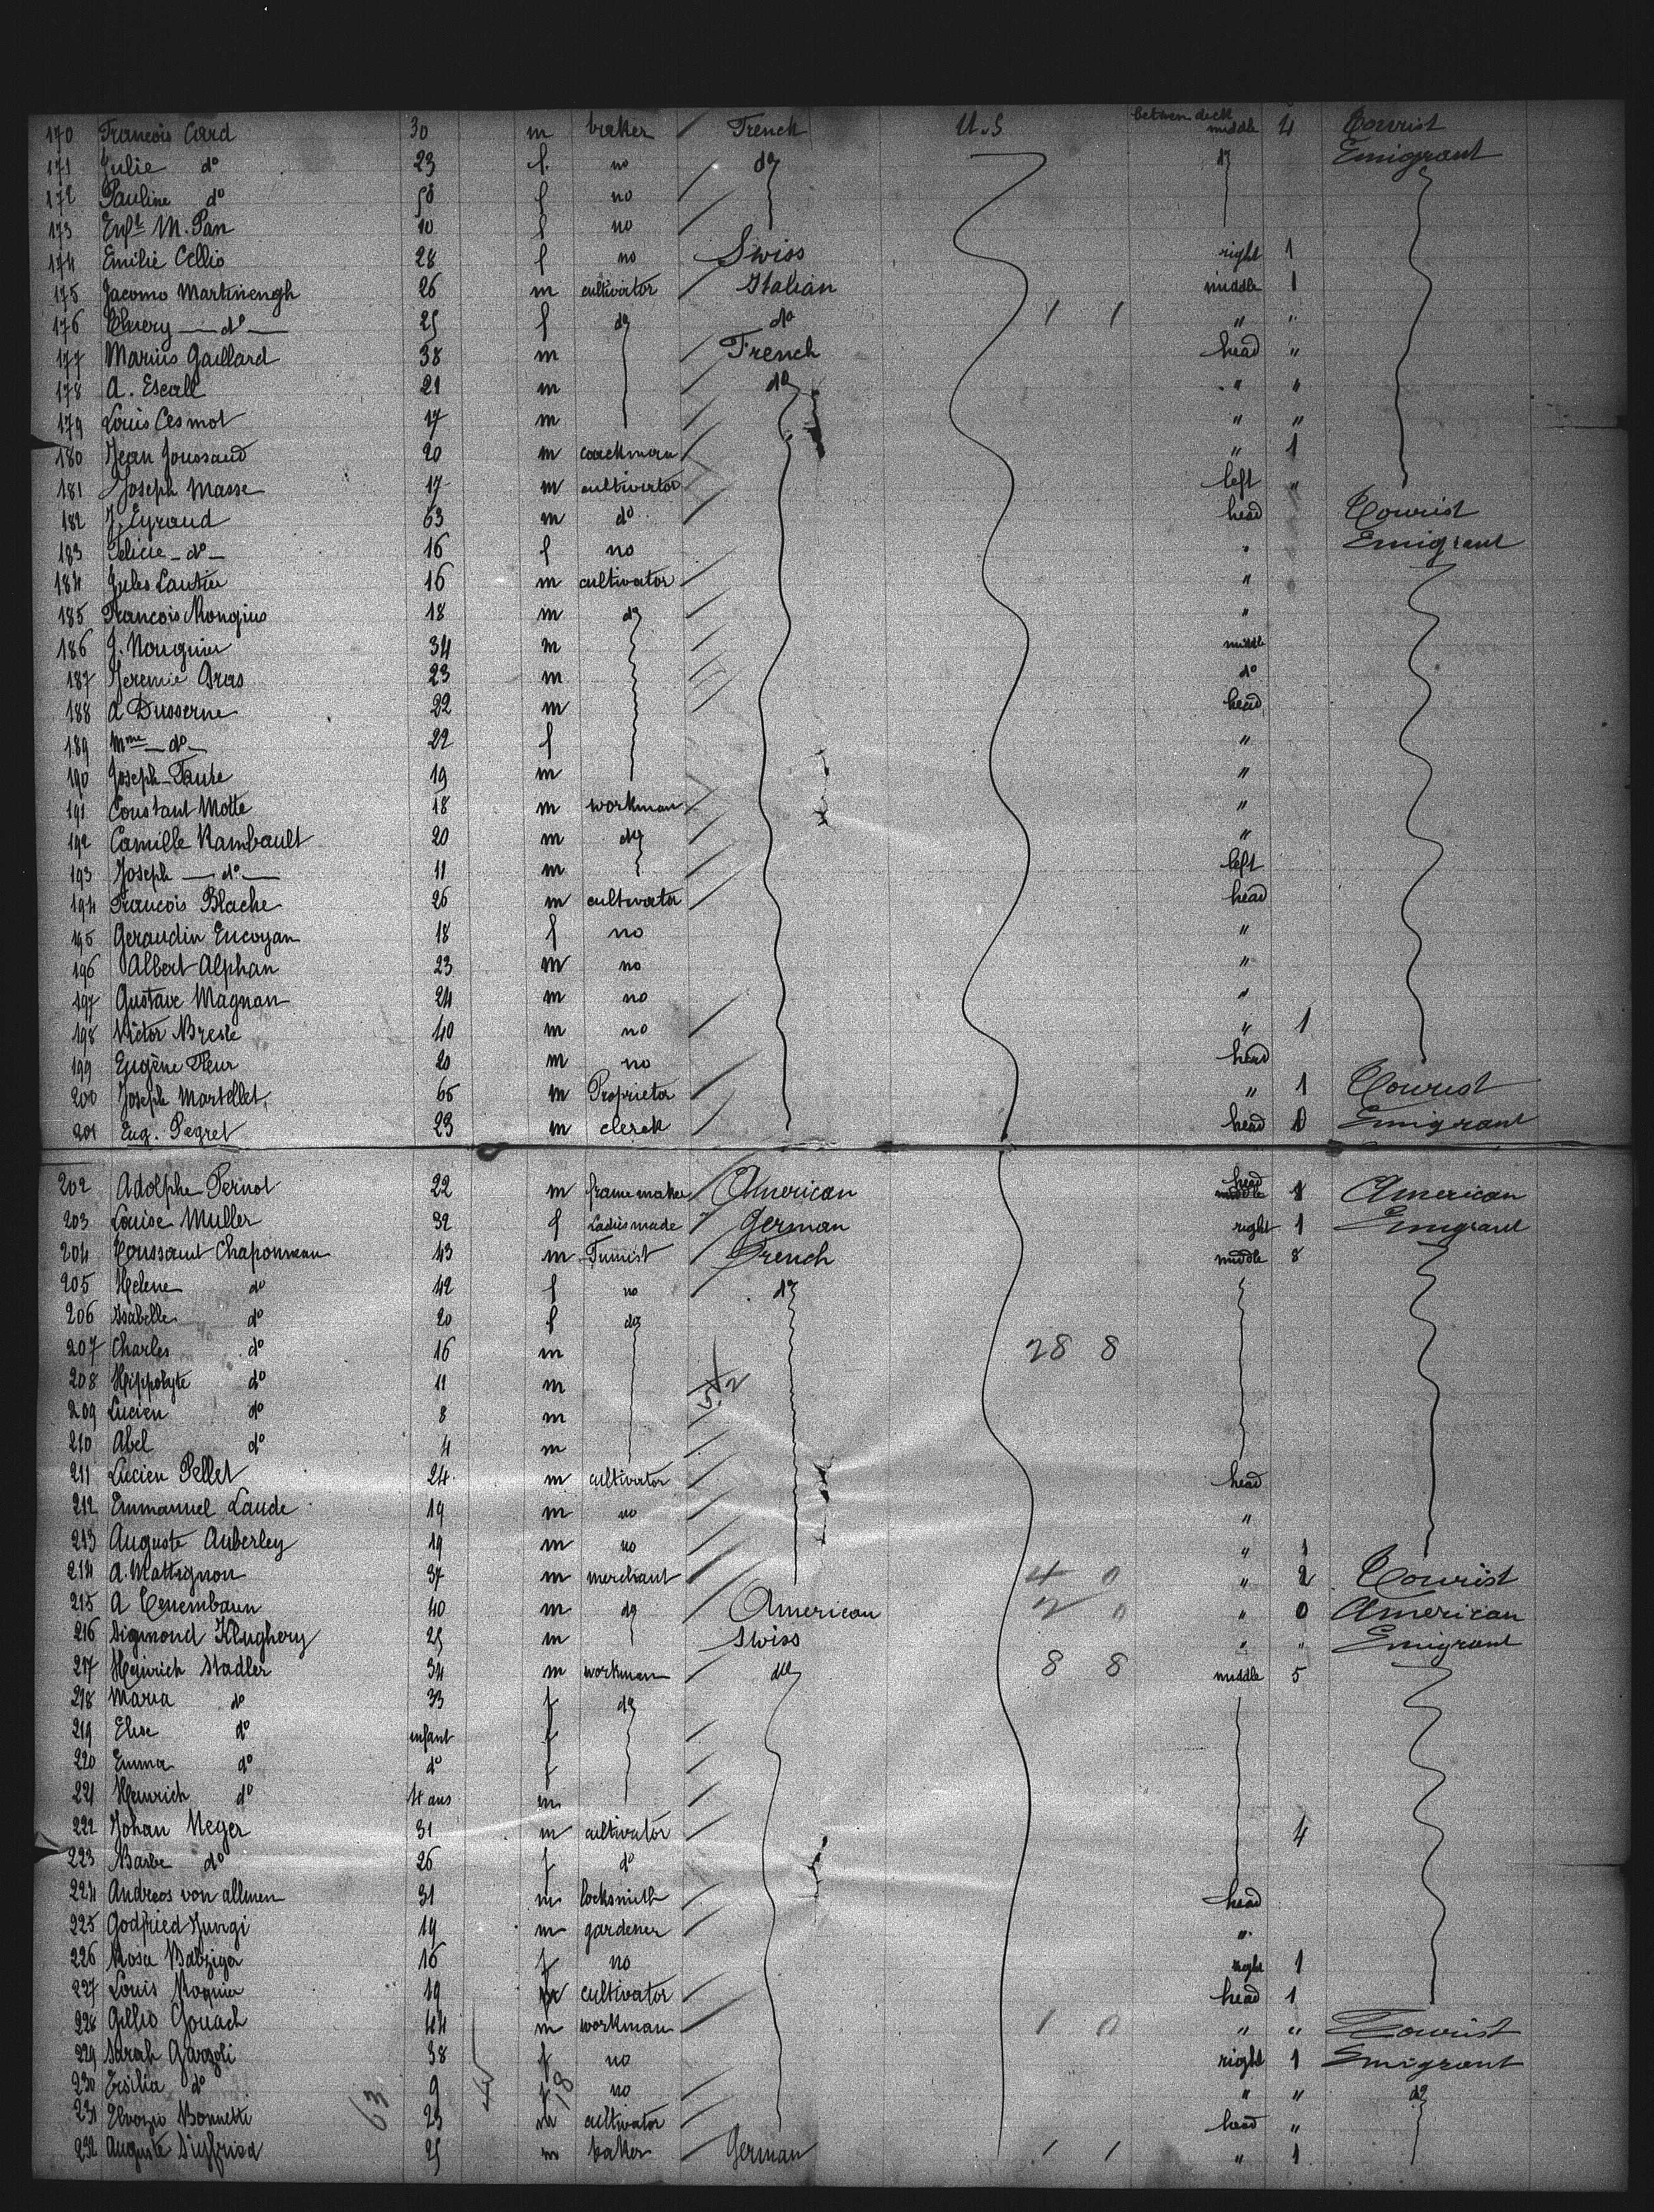 170 Francois Card 30 m baker French U.S between deck middle 4 Tourist
171 Julie do 23 f. no do do Emigrant
172 Pauline do 58 f no
173 Enft M. Pan 10 f no
174 Emilie Cellio 28 f no Swiss right 1
175 Jacomo Martinengh 26 m cultivator Italian middle 1
176 do 25 f do do 1 1 " "
177 Marius Gaillard 38 m French head "
178 A. Escall 21 m do " "
179 Louis Cesmot 17 m " "
180 Jean Joussaud 20 m coachman " 1
181 Joseph Masse 17 m cultivator left "
182 J. Eyraud 63 m do head Tourist
183 Felicie do 16 f no " Emigrant
184 Jules Lautier 16 m cultivator "
185 Francois Mongius 18 m do "
186 J. Nouguier 34 m middle
187 Jeremie Gras 23 m do
188 A Dusserne 22 m head
189 Mme do 22 f "
190 Joseph Faure 19 m "
191 Constant Motte 18 m workman "
192 Camille Rambault 20 m do "
193 Joseph do 11 m left
194 Francois Blache 26 m cultivator head
195 Geraudin Encoyan 18 f no "
196 Albert Alphan 23 m no "
197 Gustave Magnan 24 m no "
198 Victor Bresle 40 m no " 1
199 Eugène Fleur 20 m no head
200 Joseph Martellet 65 m Proprietor " 1 Tourist
201 Eug. Pegret 23 m clerck head 0 Emigrant
202 Adolphe Pernot 22 m frame maker American head 1 American
203 Louise Muller 32 f Ladies made German right 1 Emigrant
204 Toussaint Chaponneau 43 m Fumist French middle 8
205 Helene do 42 f no do
206 Isabelle do 20 f do
207 Charles do 16 m 28 8
208 Hippolyte do 11 m
209 Lucien do 8 m
210 Abel do 4 m
211 Lucien Pellet 24 m cultivator head
212 Emmanuel Laude 19 m no "
213 Auguste Auberley 19 m no " 1
214 A. Mattignon 37 m merchant 4 0 " 2 Tourist
215 A 40 m do American 2 0 " 0 American
216 Sigmond Klughery 25 m Swiss " " Emigrant
217 Heinrich Stadler 34 m workman do 8 8 middle 5
218 Maria do 33 f do
219 Elise do enfant f
220 Emma do do f
221 Heinrich do 4 ans m
222 Johan Neger 31 m cultivator 4
223 Barbe do 26 f do
224 Andreos von allmen 31 m locksmith head
225 Godfried Jungi 19 m gardener "
226 Rosa Balziga 16 f no right 1
227 Louis Roquier 19 m cultivator head 1
228 Gillio Gouach 44 m workman 1 0 " " Tourist
229 Sarah Garzoli 38 f no right 1 Emigrant
230 Ersilia do 9 f no " " do
231 Bonnetti 23 m cultivator head "
232 Auguste Siegfried 25 m baker German 1 1 " 1
63 18